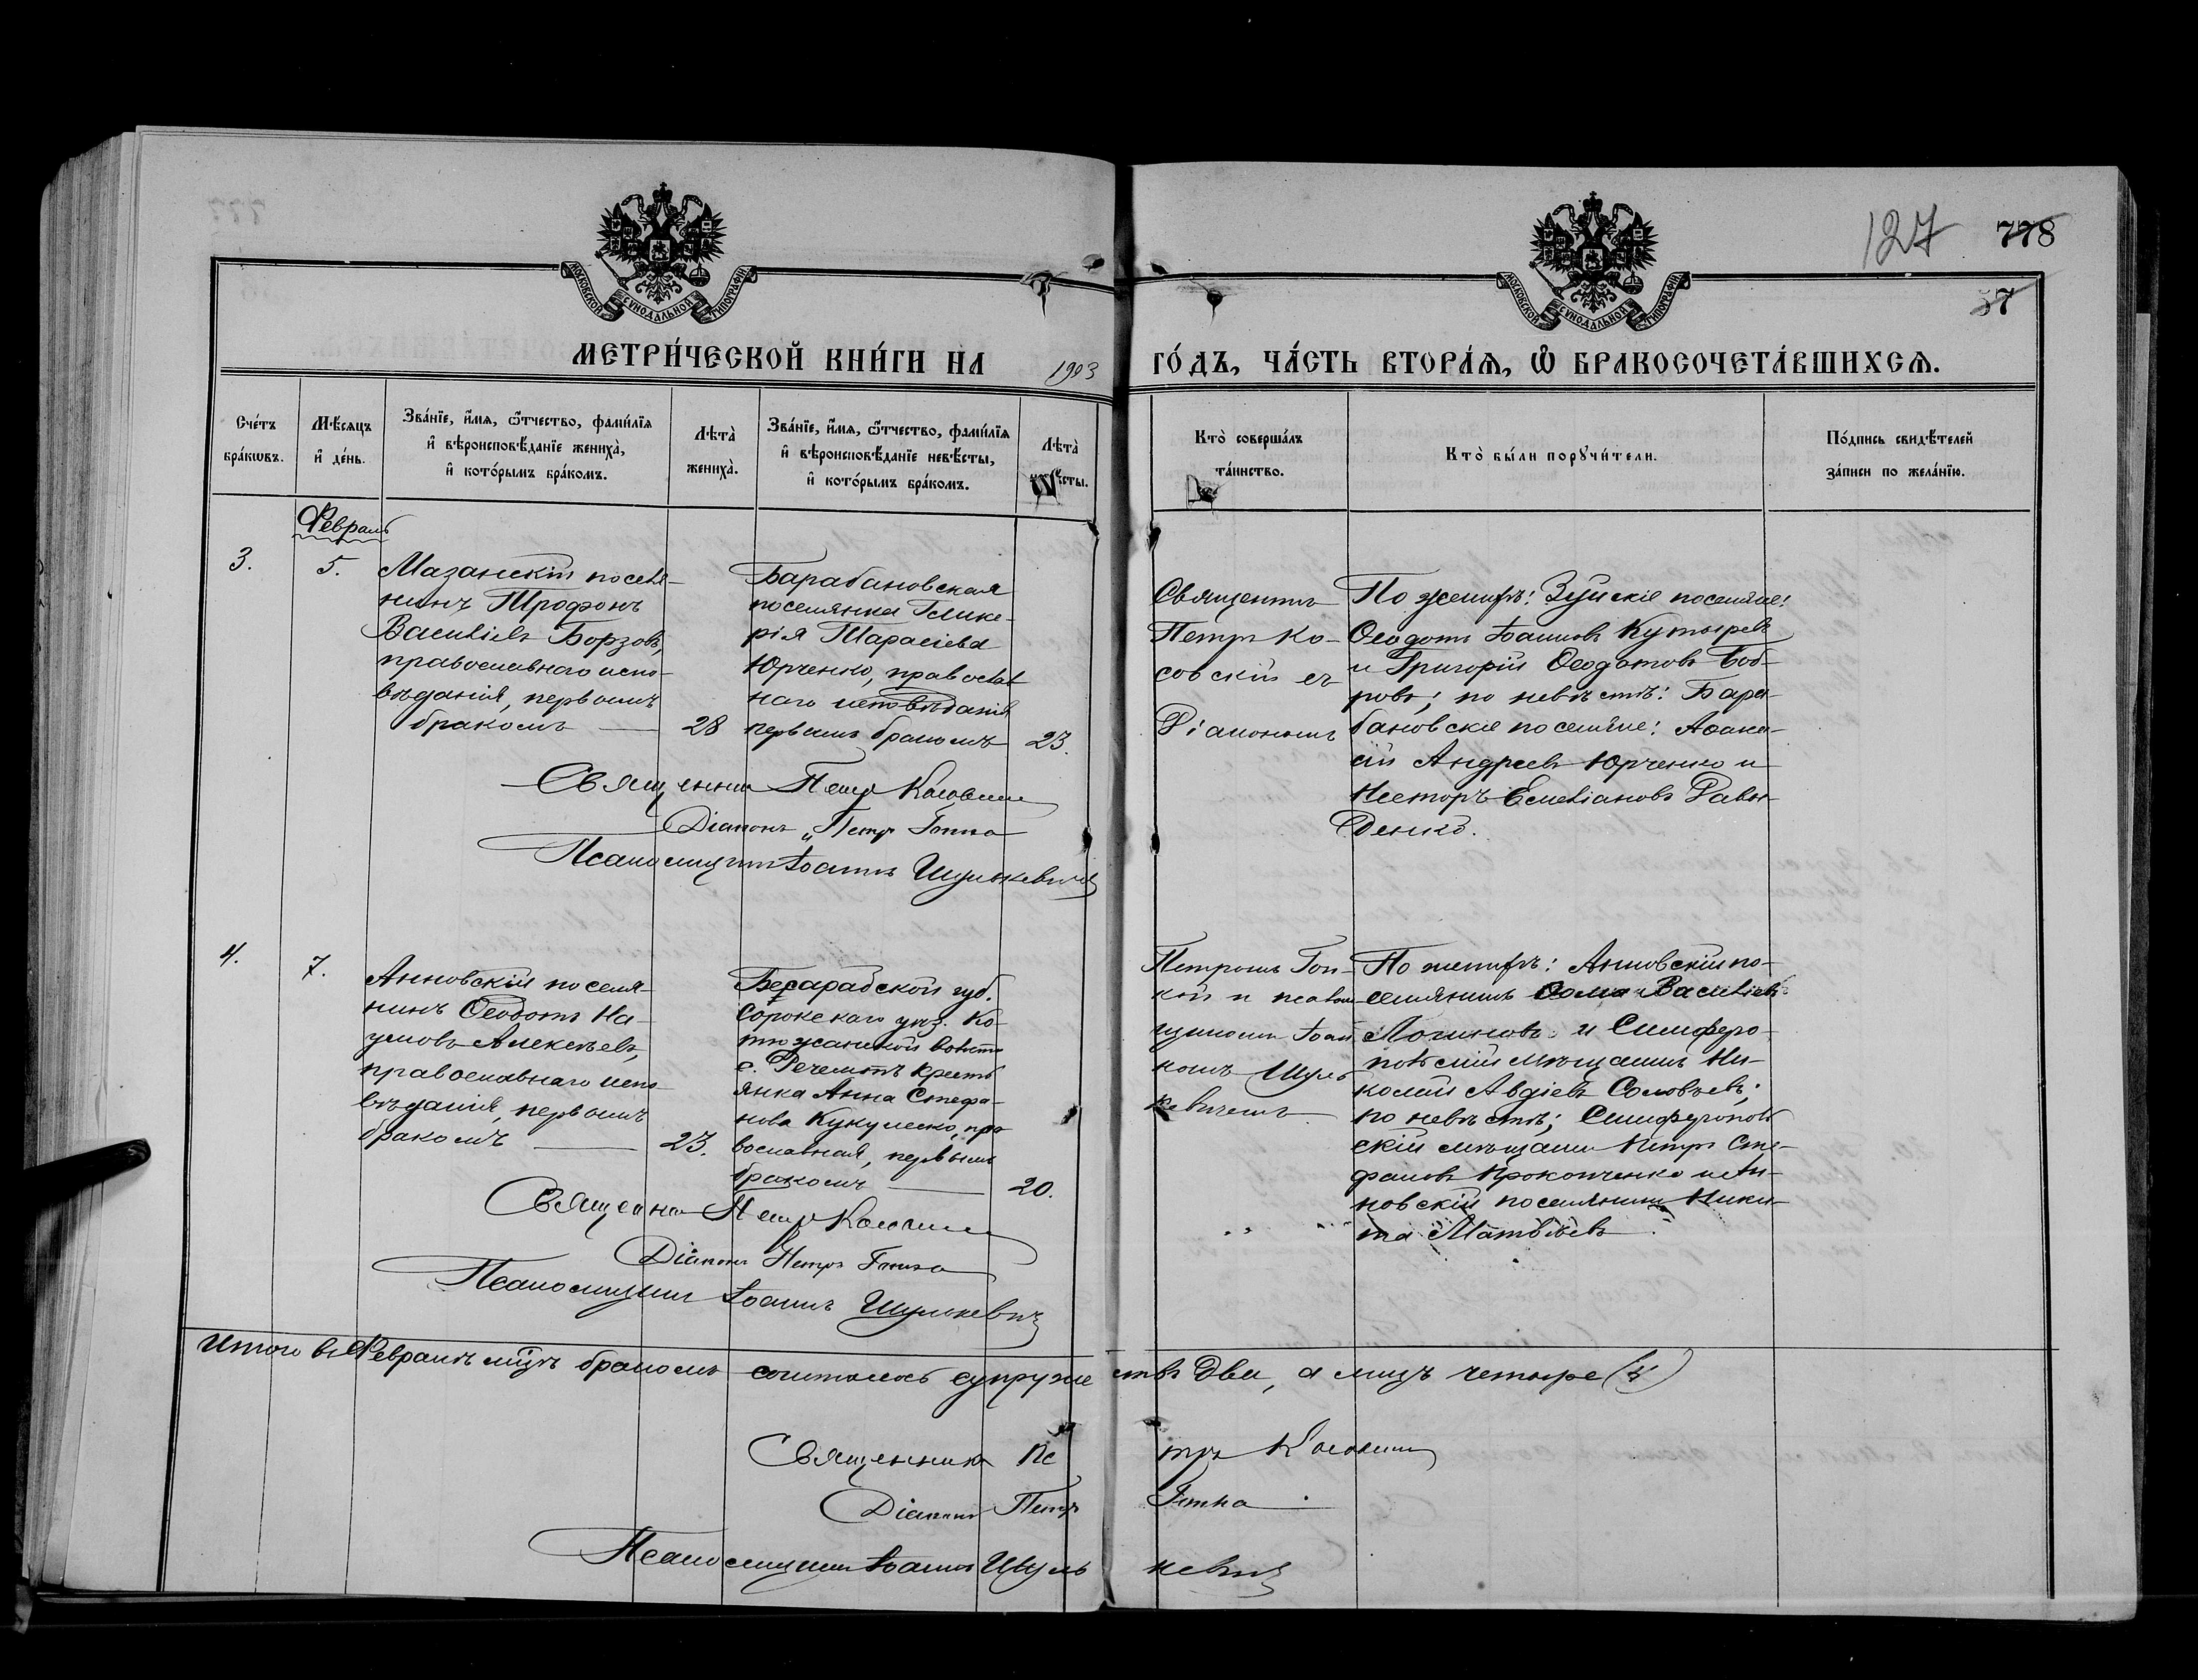 127 778
57
МОСКОВСКОЙ СѴНОДАЛЬНОЙ ТИПОГРАФІИ
МОСКОВСКОЙ СѴНОДАЛЬНОЙ ТИПОГРАФІИ
МЕТРИ́ЧЕСКОЙ КНИ́ГИ НА 1903 ГО́ДЪ, ЧА́СТЬ ВТОРА́Ѧ, Ѡ҆ БРАКОСОЧЕТА́ВШИХСѦ.
Сче́тъ
бра́кѡвъ.
Мѣ́сяцъ
и҆ де́нь.
Зва́нїе, и҆́мѧ, ѻ҆́тчество, фамѝлїѧ
и҆ вѣроисповѣ́данїе жениха̀,
и҆ кото́рымъ бра́комъ.
Лѣта̀
жениха̀.
Зва́нїе, и҆́мѧ, ѻ҆́тчество, фамѝлїѧ
и҆ вѣроисповѣ́данїе невѣ́сты,
и҆ кото́рымъ бра́комъ.
Лѣта̀
невѣ́сты.
Кто̀ соверша́лъ
та́инство.
Кто̀ бы́ли порꙋчи́тели.
По́дпись свидѣ́телей
за́писи по жела́нїю.
Февраль
3.
5.
Мазанскій поселя-
нинъ Трофонъ
Василіевъ Борзовъ,
православнаго испо-
вѣданія, первымъ
бракомъ — 28
Барабановская
поселянка Глике-
рія Тарасіева
Юрченко, православ
наго исповѣданія
первымъ бракомъ 23.
Священникъ
Петръ Ко-
совскій съ
Діакономъ
По женихѣ: Зуйскіе поселяне:
Ѳеодотъ Іоанновъ Кутыревъ
и Григорій Ѳеодотовъ Боб-
ровъ; по невѣстѣ: Бара-
бановскіе поселяне: Аѳана-
сій Андреевъ Юрченко и
Несторъ Емеліановъ Давы-
денко.
Священникъ Петръ Косовскій
Діаконъ Петръ Гопка
Псаломщикъ Іоаннъ Шулькевичъ
4.
7.
Анновскій поселя-
нинъ Ѳеодотъ На-
умовъ Алексѣевъ,
православнаго испо-
вѣданія, первымъ
бракомъ — 23.
Бессарабской губ.
Сорокскаго уѣз. Ко-
тюжанской волости
с. Речештъ кресть
янка Анна Стефа-
нова Кукулеско, пра
вославная, первымъ
бракомъ — 20.
Петромъ Гоп-
кой и псалом
щикомъ Іоан
номъ Шуль
кевичемъ
По женихѣ: Анновскій по-
селянинъ Ѳома Василіевъ
Логиновъ и Симферо-
польскій мѣщанинъ Ни-
колай Авдіевъ Соловьевъ;
по невѣстѣ; Симферополь
скій мѣщанинъ Петръ Сте-
фановъ Прокопченко и Ан-
новскій поселянинъ Ники-
та Матвѣевъ
Священникъ Петръ Косовскій
Діаконъ Петръ Гопка
Псаломщикъ Іоаннъ Шулькевичъ
Итого въ Февралѣ мцѣ бракомъ сочеталось супружествъ два, а лицъ четыре (4)
Священникъ Петръ Косовскій
Діаконъ Петръ Гопка
Псаломщикъ Іоаннъ Шулькевичъ